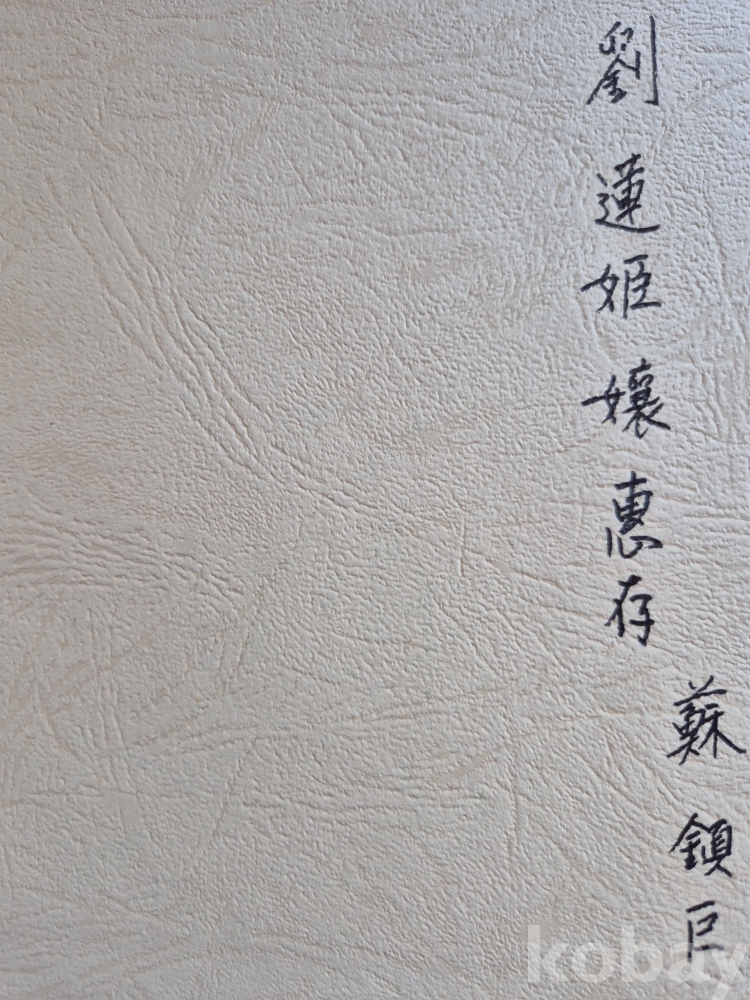 劉蓮姬孃惠存
蘇鎖巨
kobay